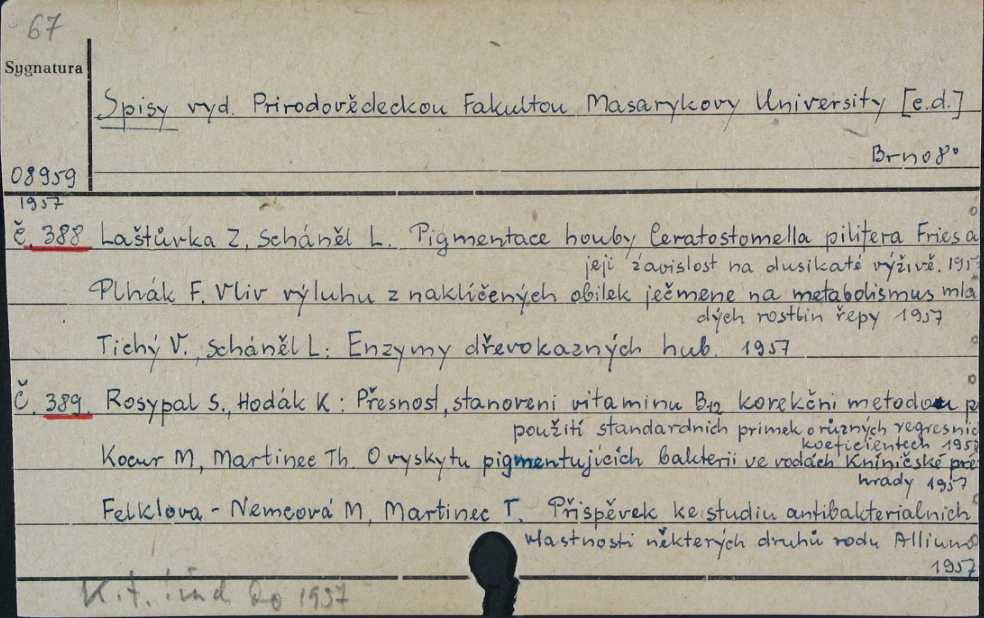 67
Sygnatura
Spisy vyd. Prirodovědeckou Fakultou Masarykovy University [e.d.]
Brno 8°
08959
1957
č. 388 Laštůvka Z, Scháněl L. Pigmentace houby Ceratostomella pilifera Fries a
její závislost na dusíkaté výživě. 1957
Plhák F. Vliv výluhu z naklíčených obilek ječmene na metabolismus mla
dých rostlin řepy 1957
Tichý V., Scháněl L: Enzymy dřevokazných hub. 1957
Č. 389 Rosypal S., Hodák K: Přesnost, stanoveni vitaminu B12 korekčni metodou p
použití standardnich primek o různých regresnic
koeficientech 1957
Kocur M, Martinec Th. O vyskytu pigmentujících bakterii ve vodách Kníničské pře
hrady 1957
Felklova - Nemcová M, Martinec T. Přispěvek ke studiu antibakterialnich
vlastnosti některých druhů rodu Allium
1957
1957